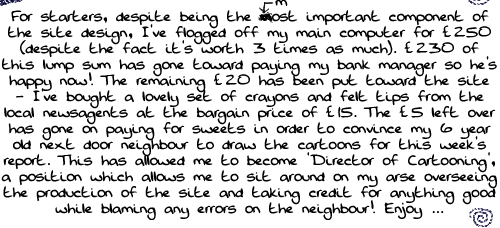 m
For starters, despite being the most important component of
the site design, I've flogged off my main computer for £250
(despite the fact it's worth 3 times as much). £230 of
this lump sum has gone toward paying my bank manager so he's
happy now! The remaining £20 has been put toward the site
- I've bought a lovely set of crayons and felt tips from the
local newsagents at the bargain price of £15. The £5 left over
has gone on paying for sweets in order to convince my 6 year
old next door neighbour to draw the cartoons for this week's
report. This has allowed me to become 'Director of Cartooning',
a position which allows me to sit around on my arse overseeing
the production of the site and taking credit for anything good
while blaming any errors on the neighbour! Enjoy ...